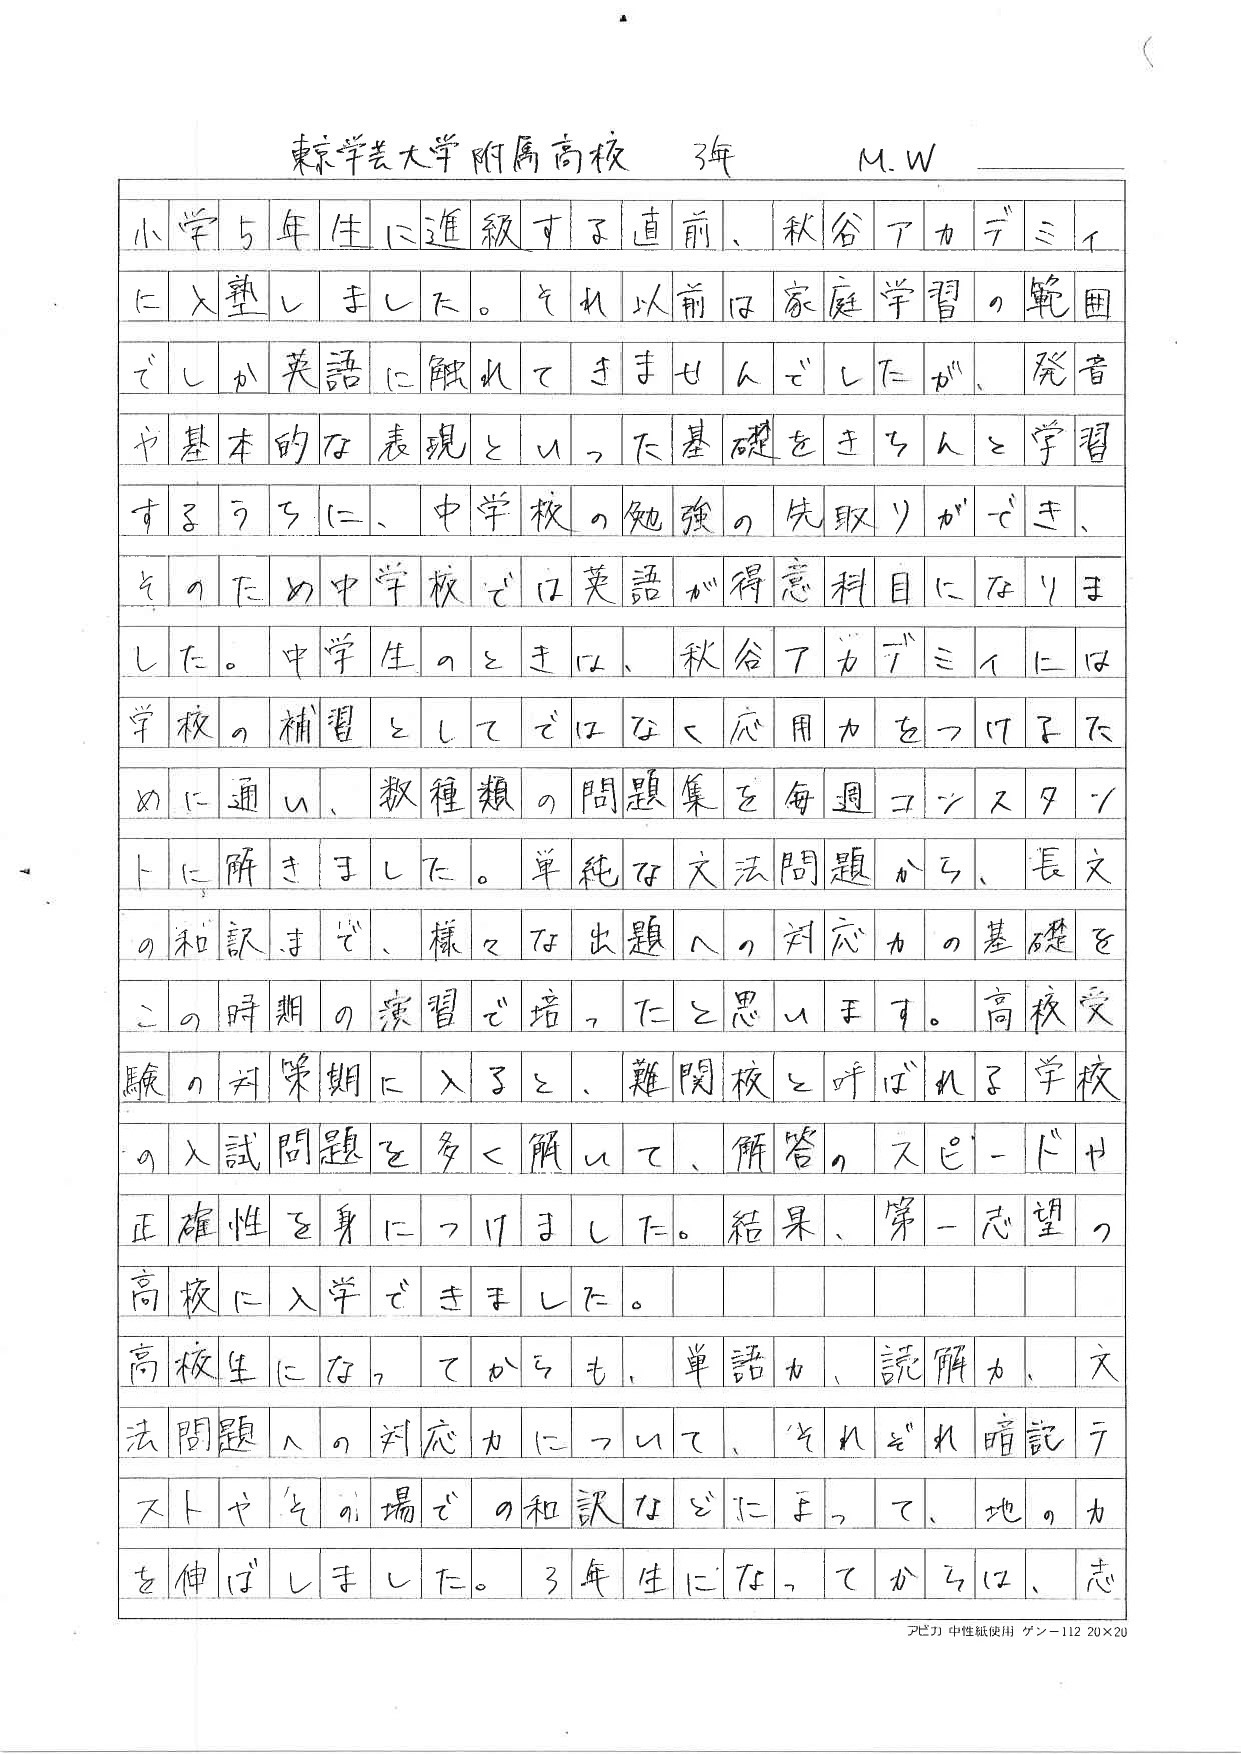 東京学芸大学附属高校 3年 M.W
小学5年生に進級する直前、秋谷アカデミィ
に入塾しました。それ以前は家庭学習の範囲
でしか英語に触れてきませんでしたが、発音
や基本的な表現といった基礎をきちんと学習
するうちに、中学校の勉強の先取りができ、
そのため中学校では英語が得意科目になりま
した。中学生のときは、秋谷アカデミィには
学校の補習としてではなく応用力をつけるた
めに通い、数種類の問題集を毎週コンスタン
トに解きました。単純な文法問題から、長文
の和訳まで、様々な出題への対応力の基礎を
この時期の演習で培ったと思います。高校受
験の対策期に入ると、難関校と呼ばれる学校
の入試問題を多く解いて、解答のスピードや
正確性を身につけました。結果、第一志望の
高校に入学できました。
高校生になってからも、単語力、読解力、文
法問題への対応力について、それぞれ暗記テ
ストやその場での和訳などによって、地の力
を伸ばしました。3年生になってからは、志
アピカ 中性紙使用 ゲンー112 20×20